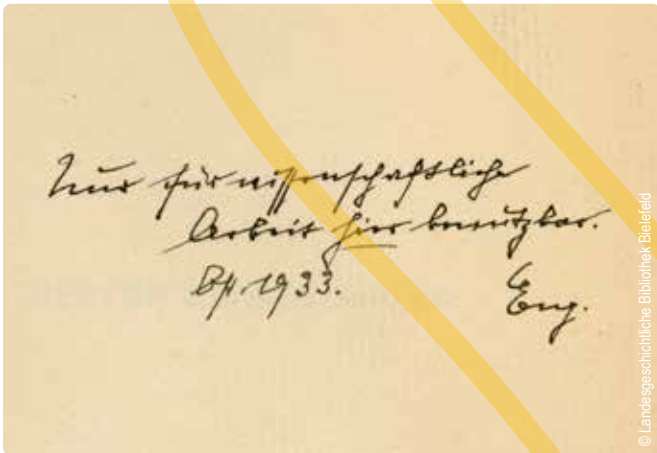 Nur für wissenschaftliche
Arbeit hier benützbar.
1933.
Eng.
© Landesgeschichtliche Bibliothek Bielefeld